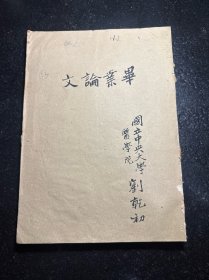 畢業論文
國立中央大學
醫學院
劉乾初